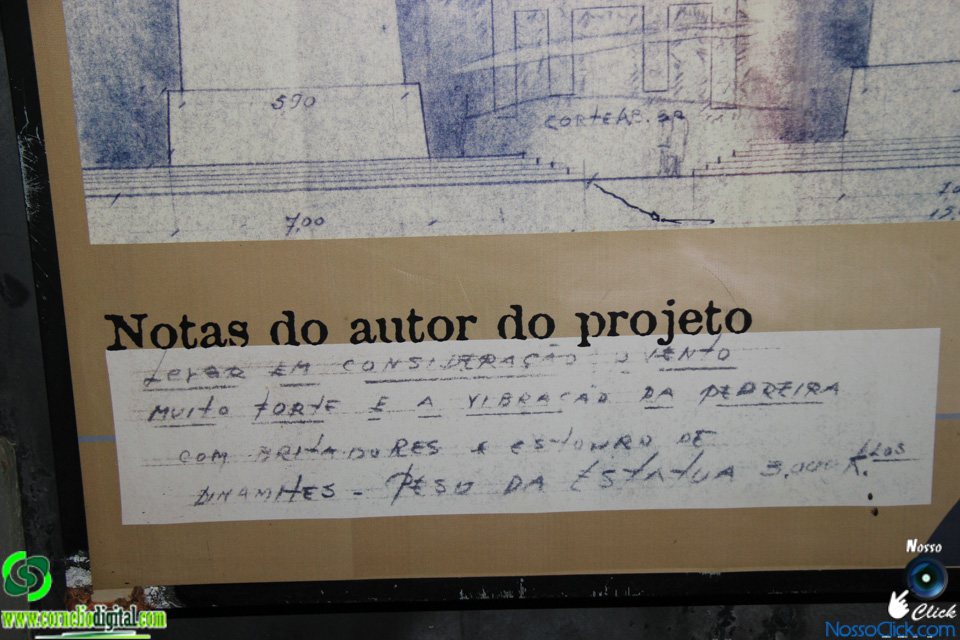 590
CORTE AB. GR
7,00
Notas do autor do projeto
Levar EM CONSIDERAÇÃO O VENTO
MUITO FORTE E A VIBRAÇÃO DA PEDREIRA
COM BRITADORES E ESTOURO DE
DINAMITES - PESO DA ESTATUA 3.000 K.LLOS
Nosso
Click
www.corneliodigital.com
NossoClick.com